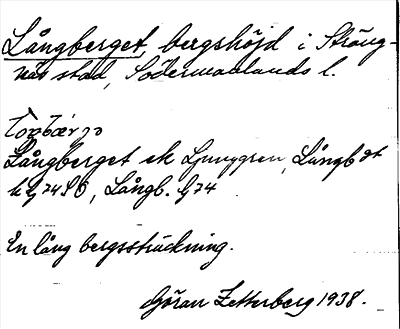 Långberget, bergshöjd i Sträng-
näs stad, Södermanlands l.
Långberget ek Ljunggren, Långb
Långb. G74
En lång bergssträckning.
Göran Zetterberg 1938.